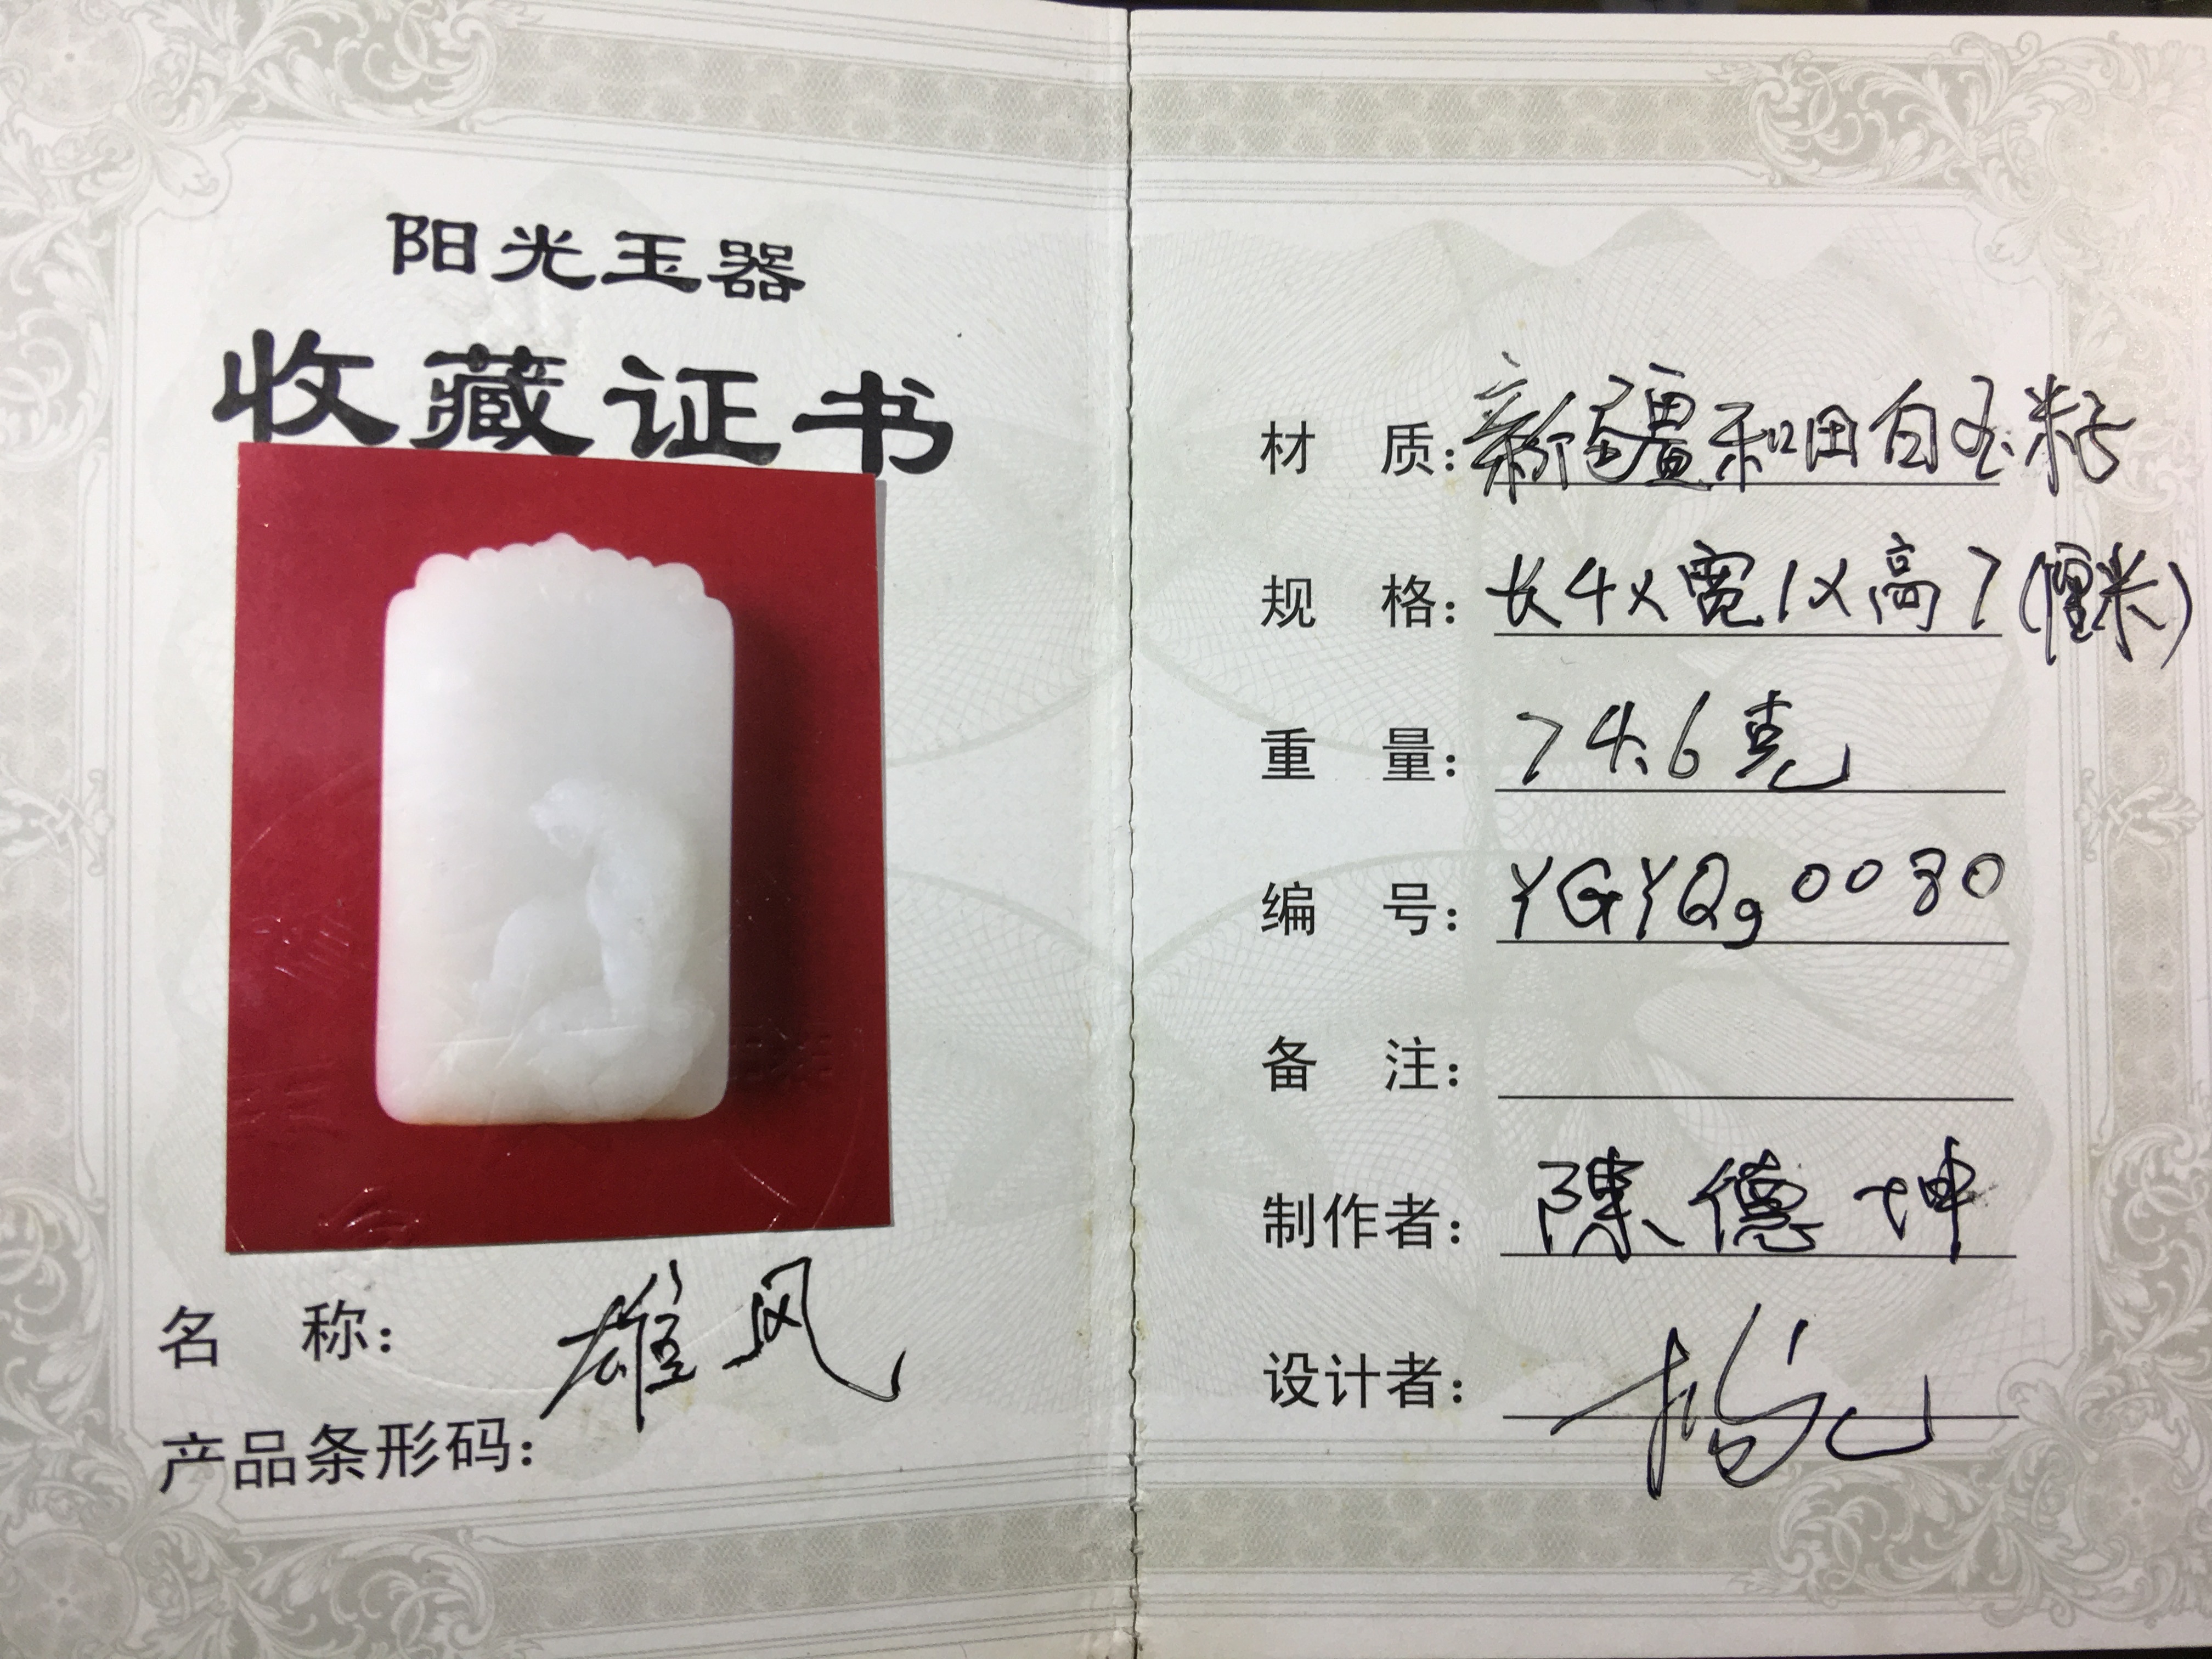 阳光玉器
收藏证书
名 称: 雄风
产品条形码:
材 质: 新疆和田白玉籽
规 格: 长4x宽1x高7(厘米)
重 量: 74.6克
编 号: YGYQg0080
备 注:
制作者: 陳德坤
设计者: